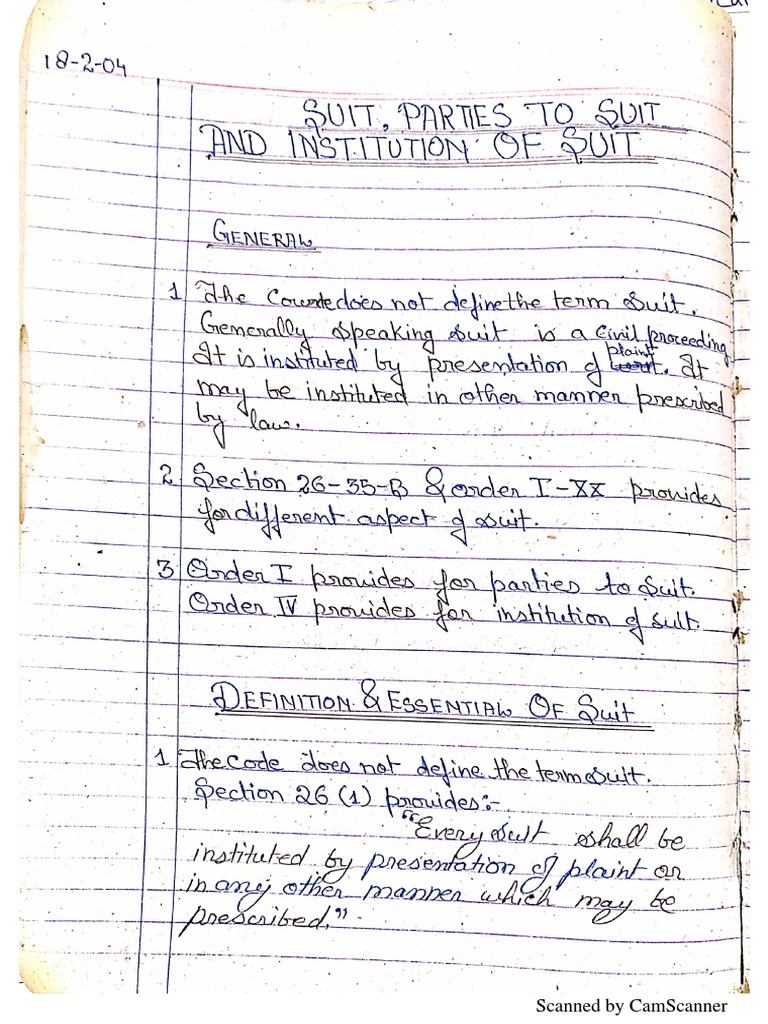 18-2-04
SUIT, PARTIES TO SUIT
AND INSTITUTION OF SUIT
GENERAL
1 The Courte does not define the term suit.
Generally speaking suit is a civil proceeding
It is instituted by presentation of plaint. It
may be instituted in other manner prescribed
by law.
2 Section 26-35-B & order I-XX provides
for different aspect of suit.
3 Order I provides for parties to suit.
Order IV provides for institution of suit.
DEFINITION & ESSENTIAL OF SUIT
1 The code does not define the term suit.
Section 26 (1) provides:-
"Every suit shall be
instituted by presentation of plaint or
in any other manner which may be
prescribed."
Scanned by CamScanner